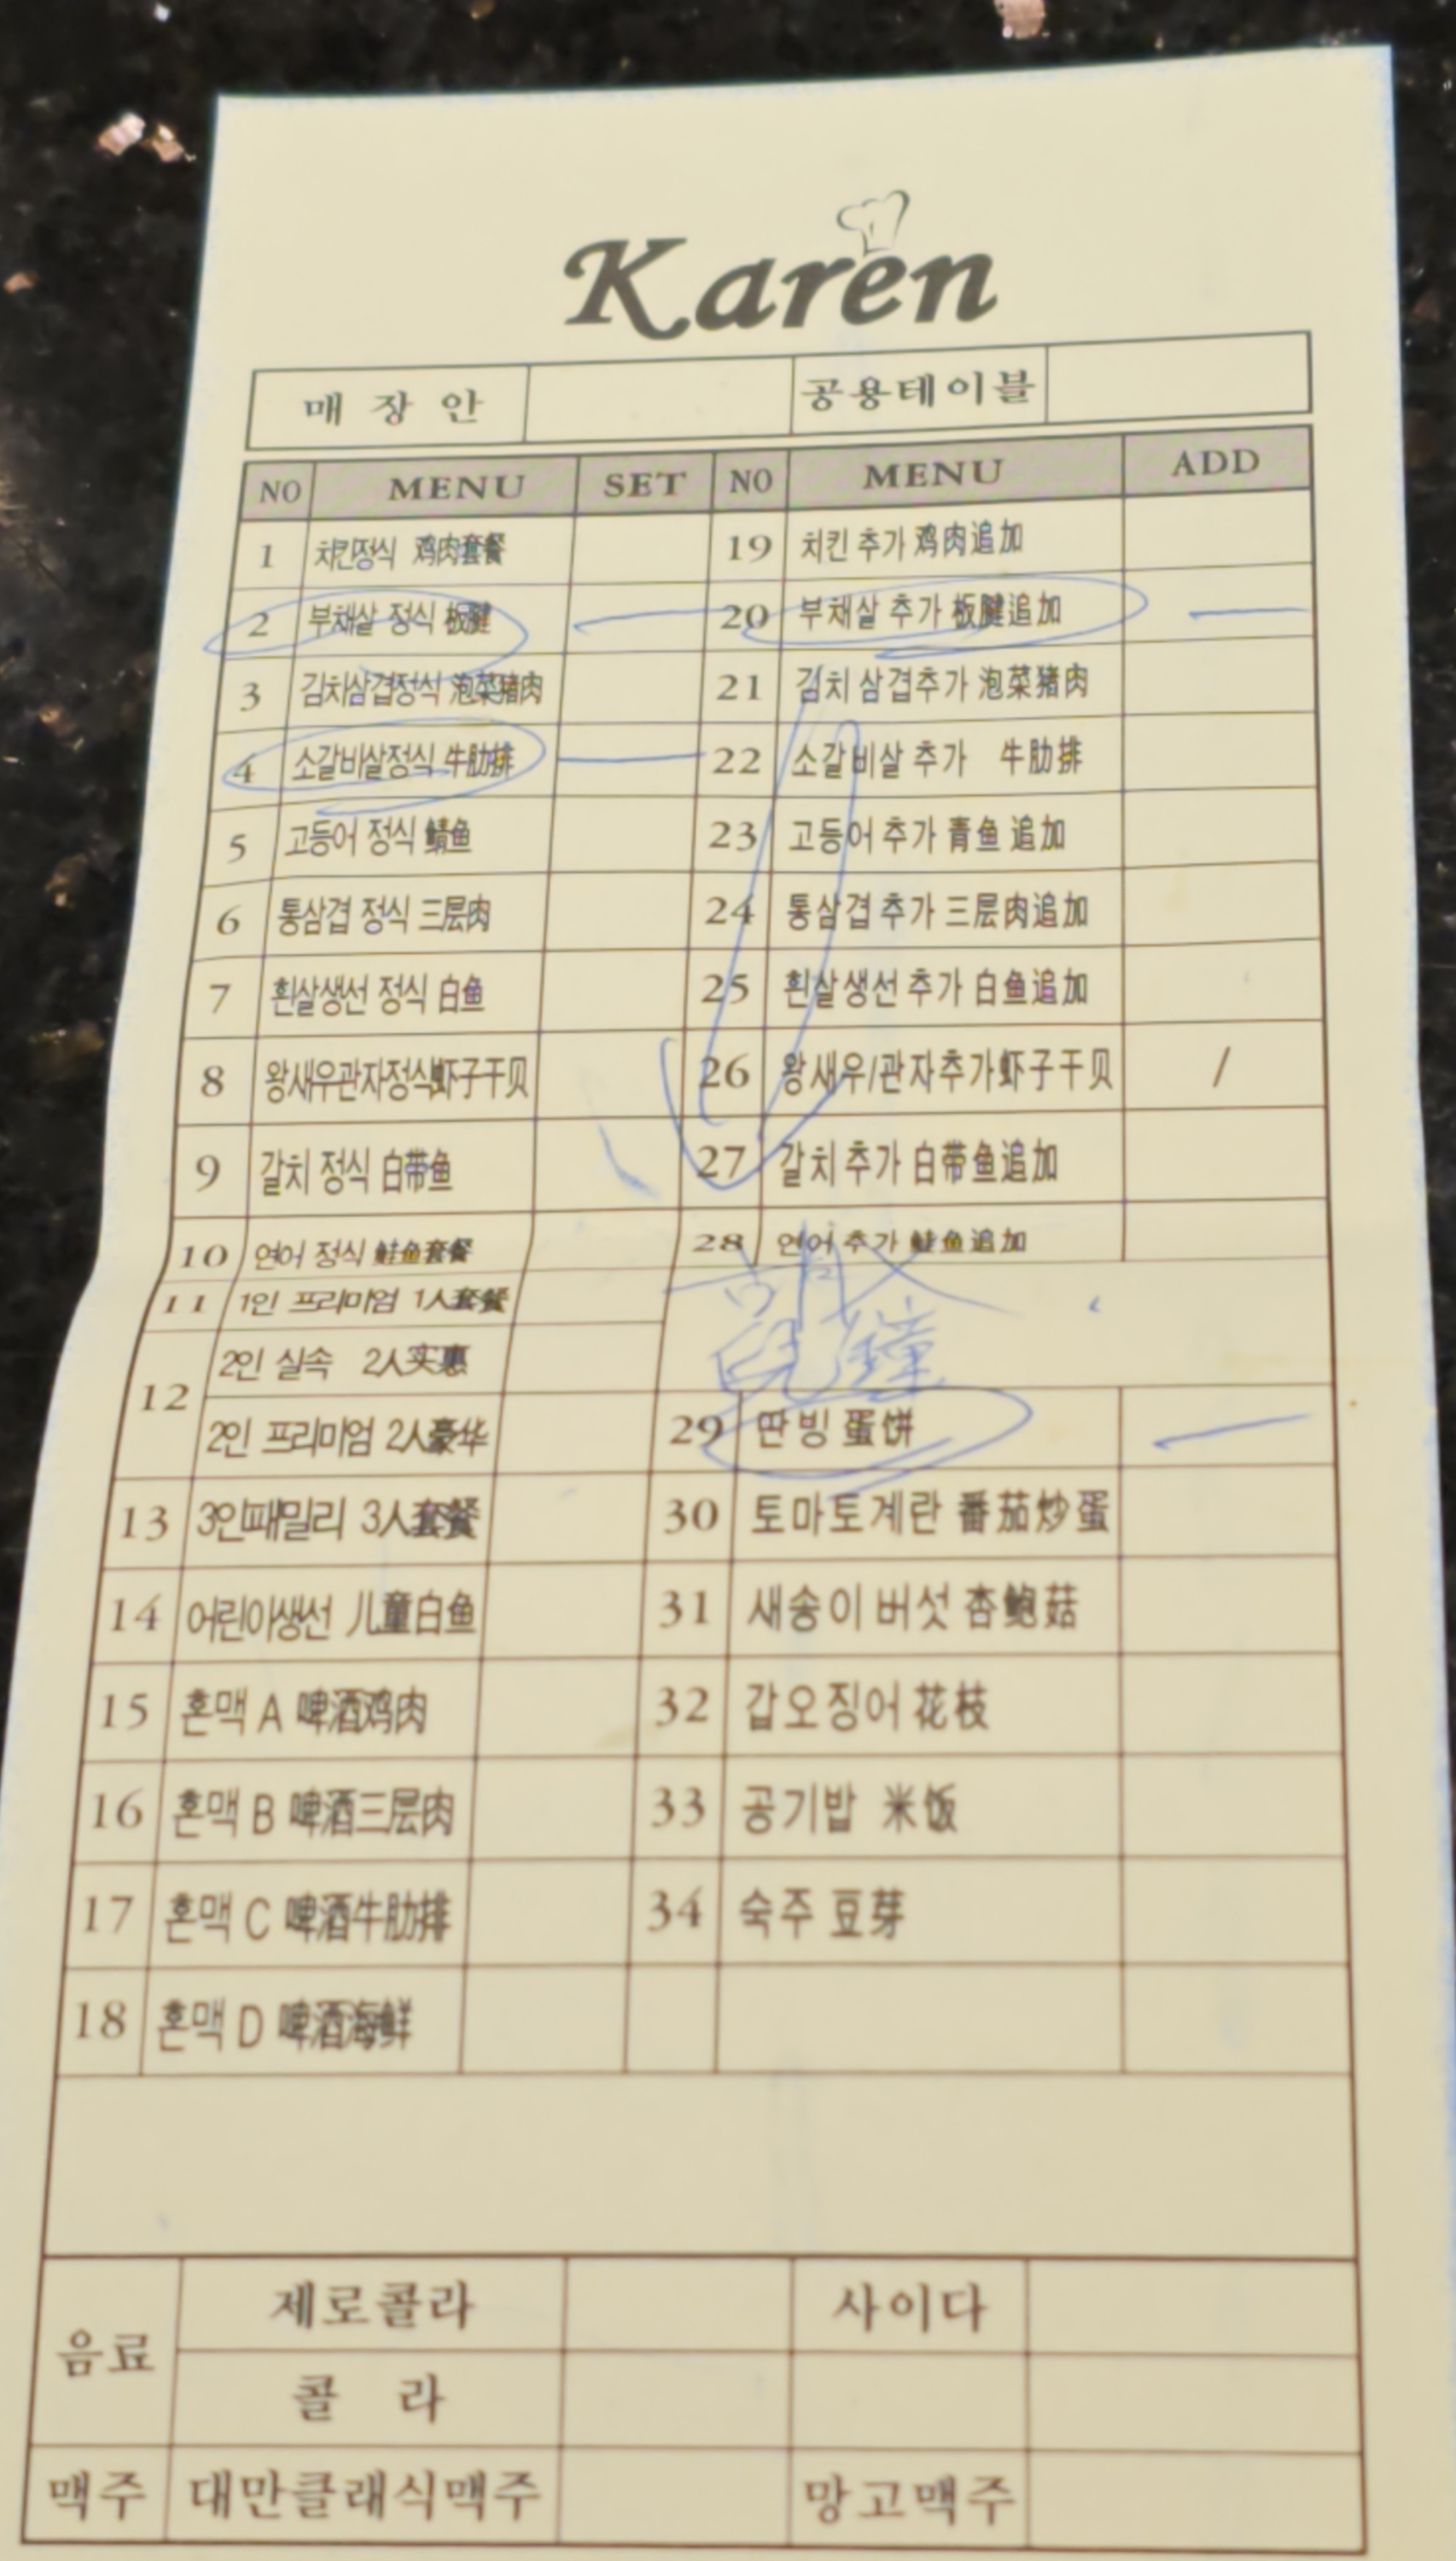 Karen
매장안 공용테이블
NO MENU SET NO MENU ADD
1 치킨정식 鸡肉套餐 19 치킨 추가 鸡肉追加
2 부채살 정식 板腱 20 부채살 추가 板腱追加
3 김치삼겹정식 泡菜猪肉 21 김치 삼겹추가 泡菜猪肉
4 소갈비살정식 牛肋排 22 소갈비살 추가 牛肋排
5 고등어 정식 鲭鱼 23 고등어 추가 青鱼 追加
6 통삼겹 정식 三层肉 24 통삼겹 추가 三层肉追加
7 흰살생선 정식 白鱼 25 흰살생선 추가 白鱼追加
8 왕새우관자정식虾子干贝 26 왕새우/관자추가虾子干贝 /
9 갈치 정식 白带鱼 27 갈치 추가 白带鱼追加
10 연어 정식 鲑鱼套餐 28 연어 추가 鲑鱼追加
11 1인 프리미엄 1人套餐
12 2인 실속 2人实惠
兒童
2인 프리미엄 2人豪华 29 딴빙 蛋饼
13 3인패밀리 3人套餐 30 토마토계란 番茄炒蛋
14 어린이생선 儿童白鱼 31 새송이 버섯 杏鲍菇
15 혼맥 A 啤酒鸡肉 32 갑오징어 花枝
16 혼맥 B 啤酒三层肉 33 공기밥 米饭
17 혼맥 C 啤酒牛肋排 34 숙주 豆芽
18 혼맥 D 啤酒海鲜
음료 제로콜라 사이다
콜 라
맥주 대만클래식맥주 망고맥주